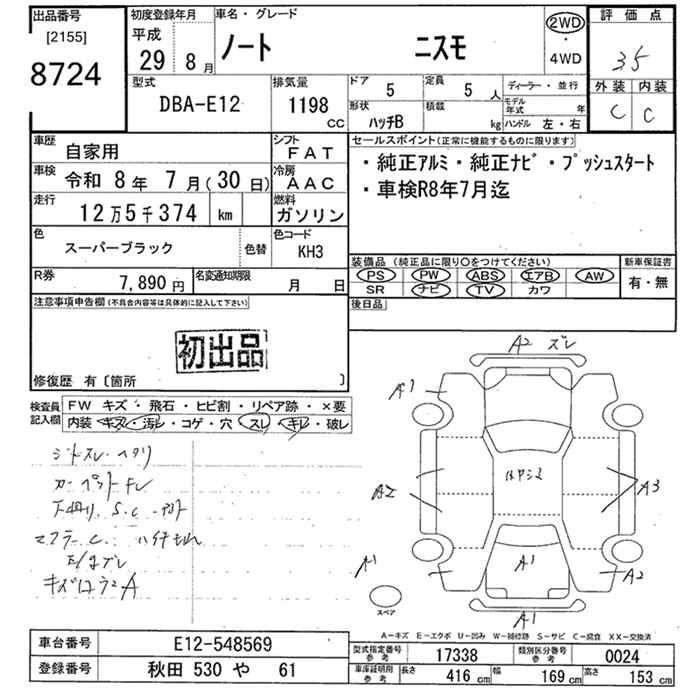 出品番号
[2155]
8724
初度登録年月
平成
29 8月
車名・グレード
ノート ニスモ
2WD
・
4WD
評価点
35
外装 内装
C C
型式
DBA-E12
排気量
1198
CC
ドア 5
定員 5人
形状 ハッチB
積載 kg
ディーラー・並行
モデル年式 年
ハンドル 左・右
車歴 自家用
シフト FAT
車検 令和 8年 7月(30日)
冷房 AAC
走行 12万5千374 km
燃料 ガソリン
色 スーパーブラック 色替
色コード KH3
R券 7,890円
名変通知期限 月 日
セールスポイント(正常に機能するものに限ります)
・純正アルミ・純正ナビ・プッシュスタート
・車検R8年7月迄
装備品(純正品に限り○をつけてください)
PS PW ABS エアB AW
SR ナビ TV カワ
新車保証書
有・無
後日品
注意事項申告欄(不具合内容等は具体的に記入して下さい)
初出品
修復歴 有〔箇所 〕
検査員記入欄
FW キズ・飛石・ヒビ割・リペア跡・×要
内装 キズ・汚レ・コゲ・穴 スレ・キレ・破レ
シートスレ ヘタリ
カーペットキレ
下回り S.C
マフラー C
A2 ズレ
A1
A2
A3
A1
A1
A2
A1
スペア
A-キズ E-エクボ U-凹み W-補修跡 S-サビ C-腐食 XX-交換済
車台番号 E12-548569
登録番号 秋田 530 や 61
型式指定番号 参考 17338
類別区分番号 参考 0024
車庫証明用 参考
長さ 416cm
幅 169cm
高さ 153cm